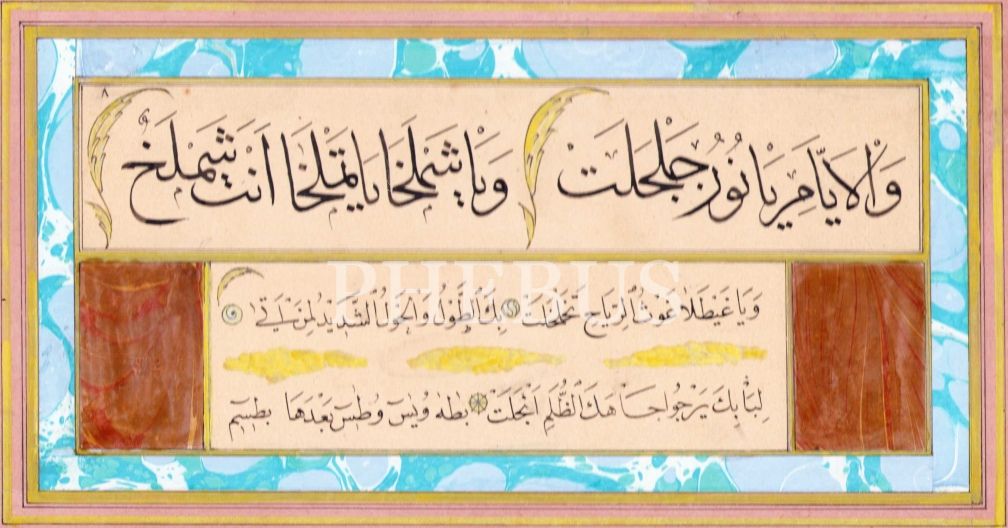 ٨
وَالَايَا مِرِيَا نُورُ جَلْجَلَتْ وَيَا شَمْلَخَا يَا تَمْلَخَا أَنْتَ شَمْلَخْ
PHEBUS
وَيَا غَيْطَلَا غَوْثُ الرِّيَاحِ تَخَلْخَلَتْ بِكَ الطَّوْلُ وَالْحَوْلُ الشَّدِيدُ لِمَنْ
لِبَابِكَ يَرْجُوا جَاهَكَ الظُّلَمِ انْجَلَتْ بِطٰهٰ وَيٰسٓ وَطٰسٓ بَعْدَهَا بِطٰسٓمٓ